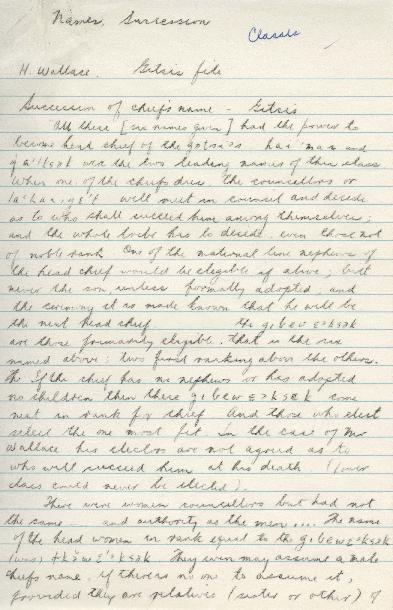 Names, Succession
Classes
H. Wallace. Gitsis file
Succession of chief's name - Gitsis
"All these [six names given] had the power to
become head chief of the and
are the two leading names of this class.
When one of the chiefs dies, the councillors or
will meet in council and decide
as to who shall succeed him among themselves;
and the whole tribe has to decide, even those not
of noble rank. One of the maternal line nephews of
the head chief would be elegible if alive; but
never the son, unless formally adopted, and
the ceremony it is made known that he will be
the next head chief. the
are those primarily eligible. that is the six
named above: two first ranking above the others.
If the chief has no nephews or has adopted
no children then these come
next in rank for chief. And those who elect
select the one most fit. In the case of Mr
Wallace his electors are not agreed as to
who will succeed him at his death. (lower
class could never be elected).
There were women councillors but had not
the same and authority as the men .... The name
of the head women in rank equal to the
(was) They even may assume a male
chiefs name, if there is no one to assume it,
provided they are relatives (sister or other) of